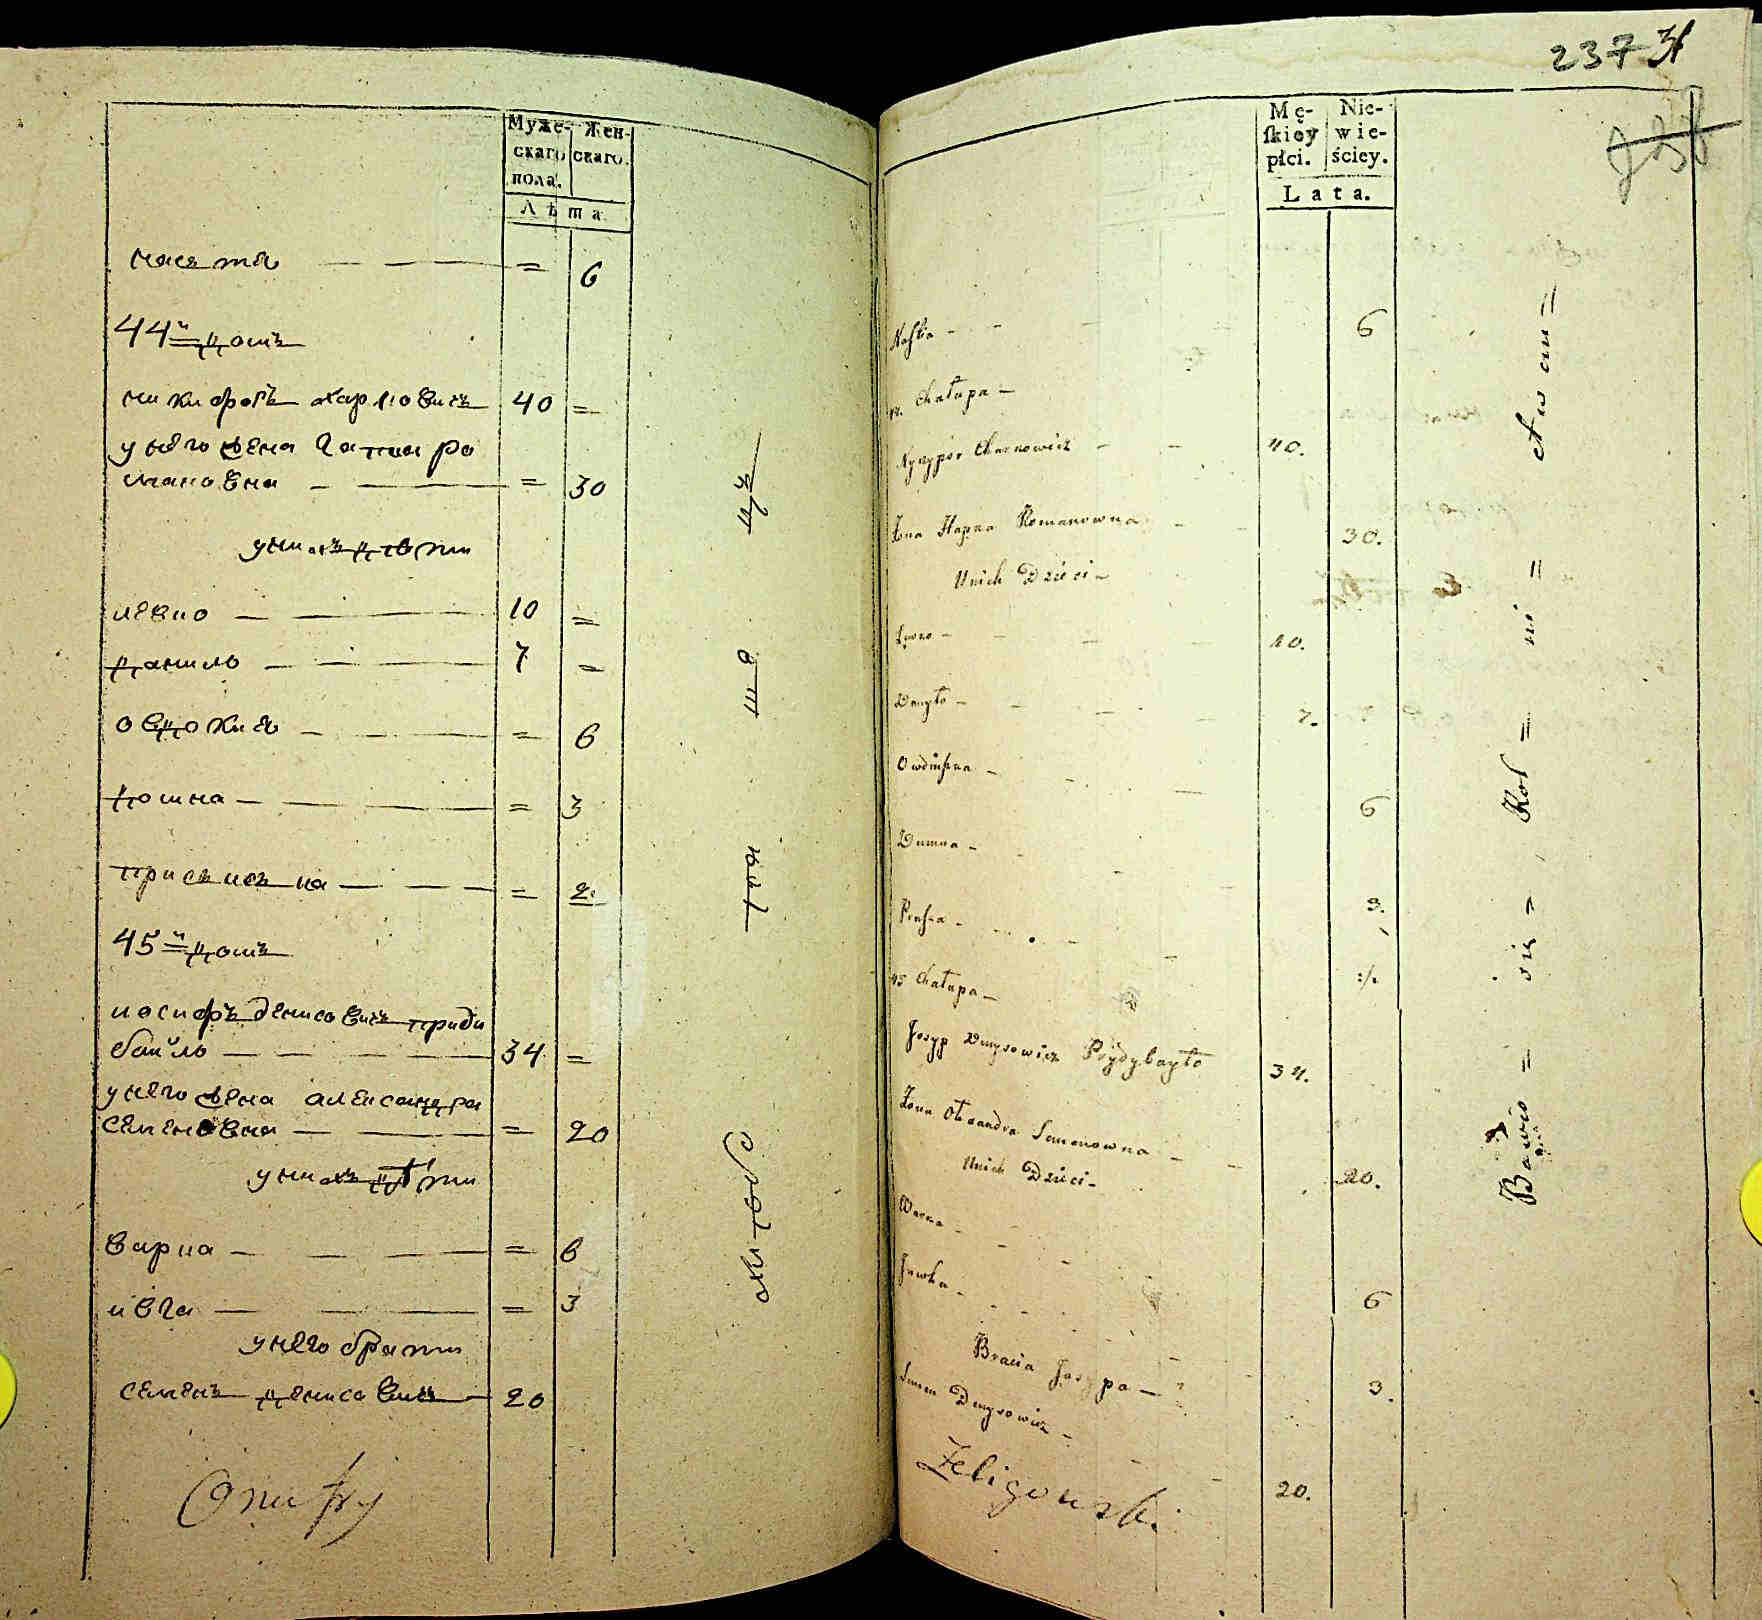 Муже-
скаго
пола.
Жен-
скаго.
Лѣта.
настя — — — = 6
44й домъ
никифоръ харковичъ 40 =
у него жена гапка ро
мановна — — = 30
у нихъ дѣти
левко — — — 10 =
данило — — — 7 =
овдокия — — — = 6
домна — — — = 3
приська — — — = 2.
45й домъ
иосифъ денисовичъ приди
байло — — — 34 =
у него жена александра
семеновна — — = 20
у нихъ дѣти
варка — — — = 6
ивга — — — = 3
у него братъ
семенъ денисовичъ — 20
Onufry
237
Mę-
skiey
płci.
Nie-
wie-
ściey.
Lata.
Nastia - - 6
Chałupa —
Nyczypor Charkowicz - - 40.
Żona Hapka Romanowna - - 30.
Unich Dzieci -
Lewko - - - 10.
Danyło - - - 7.
Owdiuszka - - - 6
Dumna - - - 3.
Praska - - -
45 Chałupa —
Josyp Denysowicz Prydybayło 34.
Żona Oleksandra Semenowna - - 20.
Unich Dzieci -
Warka - - - 6
Jewka - - - 3.
Bracia Josypa —
Semen Denysowicz - - 20.
Zeligowski